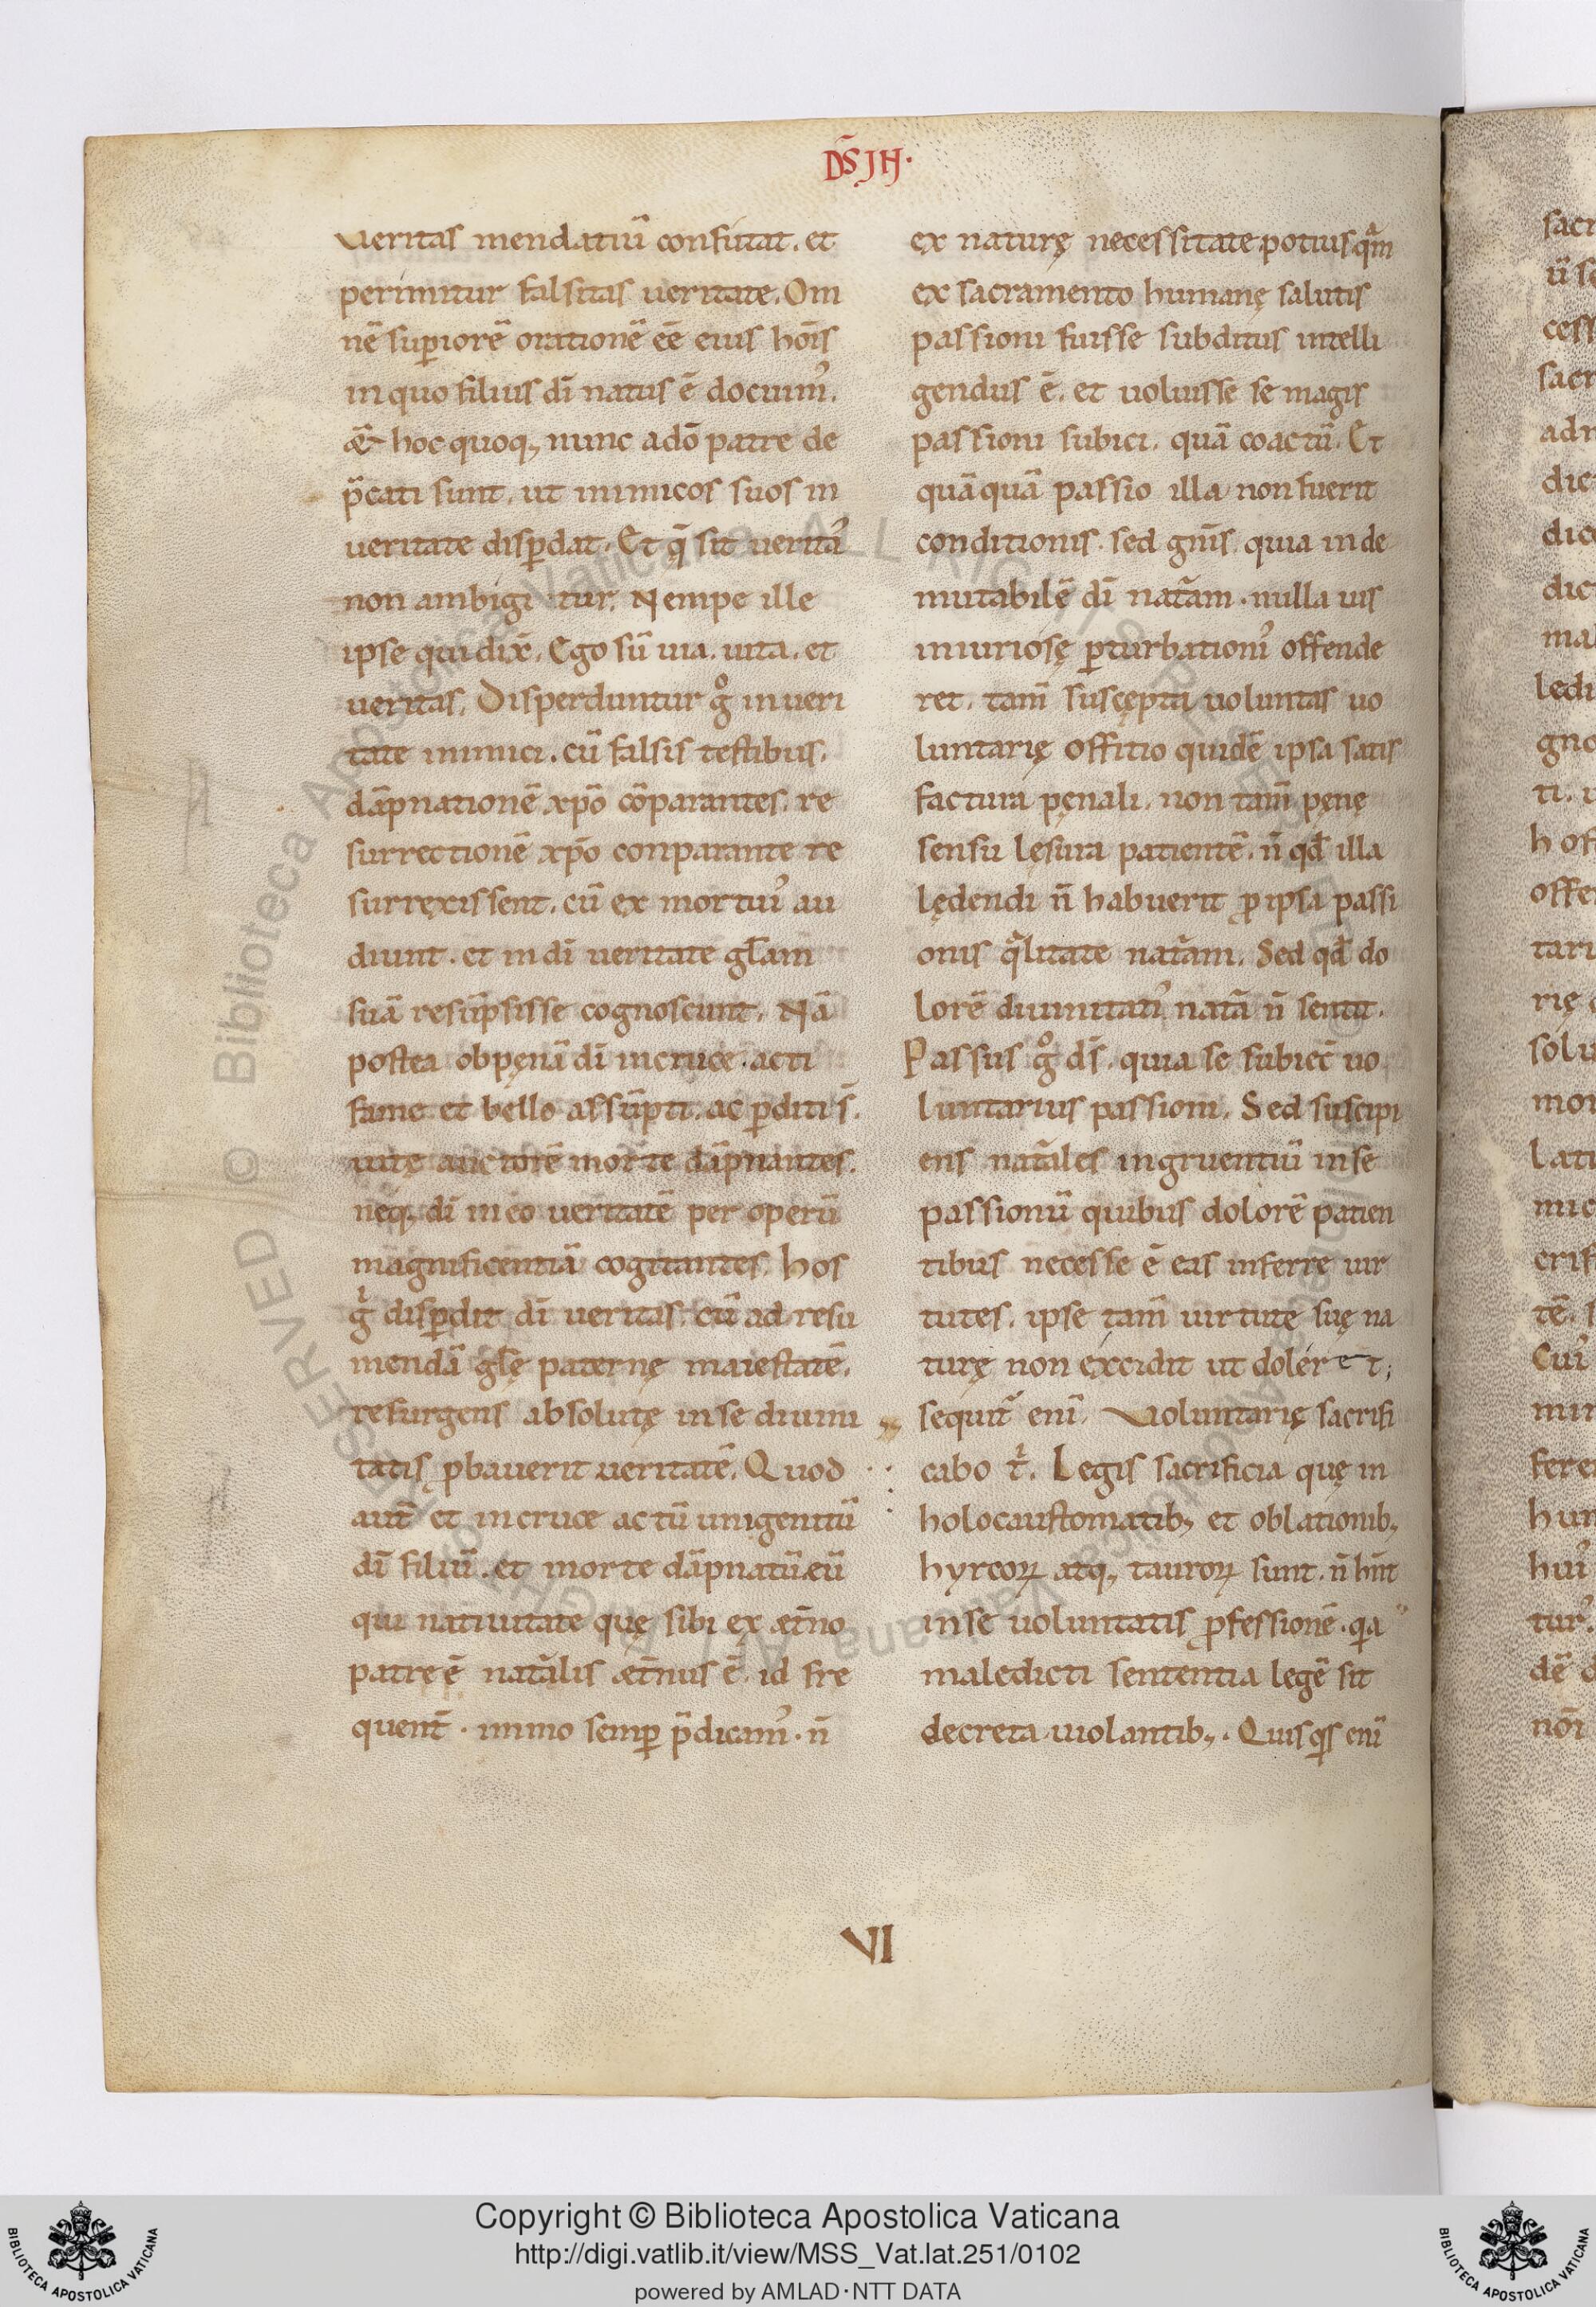 DS̄ IH·
Ueritas mendatiū confutat. et
perimitur falsitas ueritate. Om
nē sup̱iorē orationē eē eius hoīs
in quo filius dī natus ē docuim᾽.
æ hoc quoq; nunc a dō patre de
p̄cati sunt. ut inimicos suos in
ueritate disp̱dat. Et q̄ sit uerita᾽
non ambigi tur. Nempe ille
ipse qui dix̄. Ego sū uia. uita. et
ueritas. Disperduntur gͦ in ueri
tate inimici. cū falsis testibus.
dāpnationē xp̄o cōparantes. re
surrectionē xp̄o conparante re
surrexissent. cū ex mortui᾽ au
diunt. et in dī ueritate gl̄am
suā resūpsisse cognoscunt. Nā
postea ob pęnā dī in cruce. acti
fame et bello assūpti. ac p̱diti s̄.
uitę auctorē morte dāpnantes.
neq; dī in eo ueritatē per operū
magnificentiā cogitantes. hos
gͥ disp̱dit dī ueritas. cū ad resu
mendā gl̄ę paternę maiestatē.
resurgens absolutę in se diuini
tatis ꝓbauerit ueritatē. Quod
aut̄ et in cruce actū unigenitū
dī filiū. et morte dāpnatū eū
qui natiuitate quę sibi ex æt̄no
patre ē nat̄alis æt̄nus ē. id fre
quent̄. immo semp̱ p̄dicam᾽. n̄
ex naturę necessitate potius qͣm
ex sacramento humanę salutis
passioni fuisse subditus intelli
gendus ē. et uoluisse se magis
passioni subici. quā coactū. Et
quāquā passio illa non fuerit
conditionis. sed gn̄is. quia inde
mutabilē dī nat̄am. nulla uis
iniuriosę p̱turbationi᾽ offende
ret. tam̄ suscępta uoluntas uo
luntarię offitio quidē ipsa satis
factura pęnali. non tam̄ pęnę
sensu lęsura patientē. n̄ qd̄ illa
lędendi n̄ habuerit ꝓ ipsa passi
onis qͣlitate nat̄am. Sed qd̄ do
lorē diuinitati᾽ natā n̄ sentit.
Passus gͦ ds̄. quia se subiec̄ uo
luntarius passioni. Sed suscipi
ens nat̄ales ingruentiū in se
passionū quibus dolorē patien
tibus necesse ē eas inferre uir
tutes. ipse tam̄ uirtute suę na
turę non excidit ut doleret;
sequit᷑ enī. Uoluntarię sacrifi
cabo tͥ. Legis sacrificia quę in
holocaustomatib; et oblationib;
hyrcoꝝ atq; tauroꝝ sunt. n̄ hn̄t
in se uoluntatis ꝓfessionē. qͥa
maledicti sententia legē sit
decreta uiolantib;. Quisqͥs enī
VI
Copyright © Biblioteca Apostolica Vaticana
http://digi.vatlib.it/view/MSS_Vat.lat.251/0102
powered by AMLAD·NTT DATA